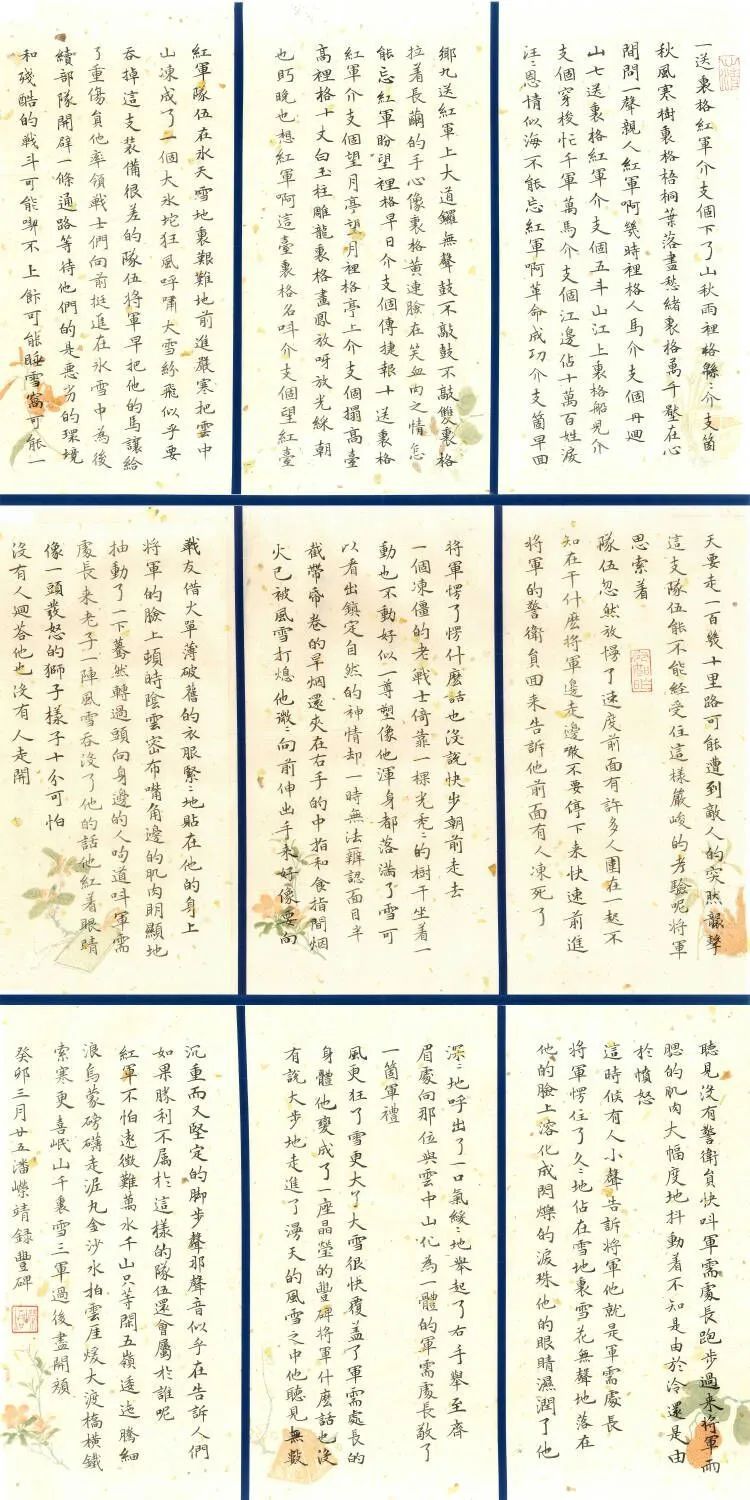 一送裏格紅軍介支個下了山秋雨裡格綿〻介支箇
秋風寒樹裏格梧桐葉落盡愁緒裏格萬千壓在心
間問一聲親人紅軍啊幾時裡格人馬介支個再迴
山七送裏格紅軍介支個五斗山江上裏格船兒介
支個穿梭忙千軍萬馬介支個江邊佔十萬百姓淚
汪〻恩情似海不能忘紅軍啊革命成功介支箇早回
鄉九送紅軍上大道鑼無聲鼓不敲鼓不敲雙裏格
拉着長繭的手心像裏格黃連臉在笑血肉之情怎
能忘紅軍盼望裡格早日介支個傳捷報十送裏格
紅軍介支個望月亭望月裡格亭上介支個搨高臺
高裡格十丈白玉柱雕龍裏格畫鳳放呀放光綵朝
也盼晚也想紅軍啊這臺裏格名叫介支個望紅臺
紅軍隊伍在氷天雪地裏艱難地前進嚴寒把雲中
山凍成了一個大氷坨狂風呼嘯大雪紛飛似乎要
吞掉這支裝備很差的隊伍將軍早把他的馬讓給
了重傷負他率領戰士們向前挺進在氷雪中為後
續部隊開闢一條通路等待他們的是惡劣的環境
和殘酷的戰斗可能喫不上飯可能睡雪窩可能一
天要走一百幾十里路可能遭到敵人的突然襲擊
這支隊伍能不能經受住這樣嚴峻的考驗呢將軍
思索着
隊伍忽然放慢了速度前面有許多人圍在一起不
知在干什麼將軍邊走邊喊不要停下来快速前進
將軍的警衛負回来告訴他前面有人凍死了
將軍愣了愣什麼話也沒說快步朝前走去
一個凍僵的老戰士倚靠一棵光禿〻的樹干坐着一
動也不動好似一尊塑像他渾身都落滿了雪可
以看出鎮定自然的神情却一時無法辨認面目半
截帶帝卷的旱烟還夾在右手的中指和食指間烟
火已被風雪打熄他微〻向前伸出手来好像要向
戰友借火單薄破舊的衣服緊〻地貼在他的身上
將軍的臉上頓時陰雲密布嘴角邊的肌肉明顯地
抽動了一下驀然轉過頭向身邊的人吻道叫軍需
處長来老子一陣風雪吞沒了他的話他紅着眼睛
像一頭發怒的獅子樣子十分可怕
沒有人迴答他也沒有人走開
聽見沒有警衛負快叫軍需處長跑步過来將軍兩
腮的肌肉大幅度地抖動着不知是由於冷還是由
於憤怒
這時候有人小聲告訴將軍他就是軍需處長
將軍愣住了久〻地佔在雪地裏雪花無聲地落在
他的臉上溶化成閃爍的淚珠他的眼睛濕潤了他
深〻地呼出了一口氣緩〻地舉起了右手舉至齊
眉處向那位與雲中山化為一體的軍需處長敬了
一箇軍禮
風更狂了雪更大了大雪很快覆蓋了軍需處長的
身體他變成了一座晶瑩的豐碑將軍什麼話也沒
有說大步地走進了漫天的風雪之中他聽見無數
沉重而又堅定的脚步聲那聲音似乎在告訴人們
如果勝利不属於這樣的隊伍還會屬於誰呢
紅軍不怕遠徵難萬水千山只等閑五嶺逶迤騰細
浪烏蒙磅礴走泥丸金沙水拍雲厓煖大渡橋橫鐵
索寒更喜岷山千裏雪三軍過後盡開顏
癸卯三月廿五潘嶸靖錄豐碑